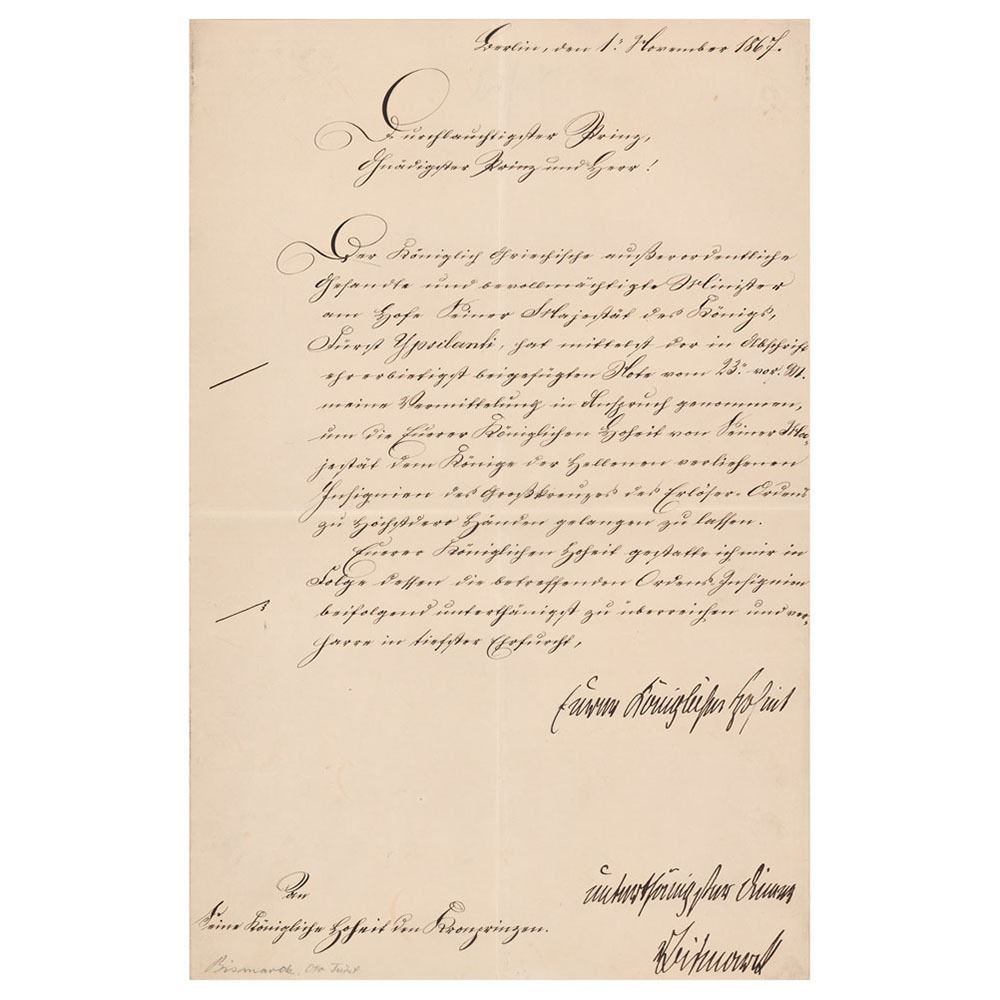 Berlin, den 1ᵗ November 1867.
Durchlauchtigster Prinz,
Gnädigster Prinz und Herr!
Der Königlich Griechische außerordentliche
Gesandte und bevollmächtigte Minister
am Hofe Seiner Majestät des Königs,
Fürst Ypsilanti, hat mittelst der in Abschrift
ehrerbietigst beigefügten Note vom 23ᵗ vor. Mt.
meine Vermittelung in Anspruch genommen,
um die Euerer Königlichen Hoheit von Seiner Ma-
jestät dem Könige der Hellenen verliehenen
Insignien des Großkreuzes des Erlöser-Ordens
zu Höchstdero Händen gelangen zu lassen.
Euerer Königlichen Hoheit gestatte ich mir in
Folge dessen die betreffenden Ordens-Insignien
beifolgend unterthänigst zu überreichen und ver-
harre in tiefster Ehrfurcht,
Eurer Königlichen Hoheit
unterthänigster Diener
vBismarck
An
Seine Königliche Hoheit den Kronprinzen.
Bismarck, Otto Fürst